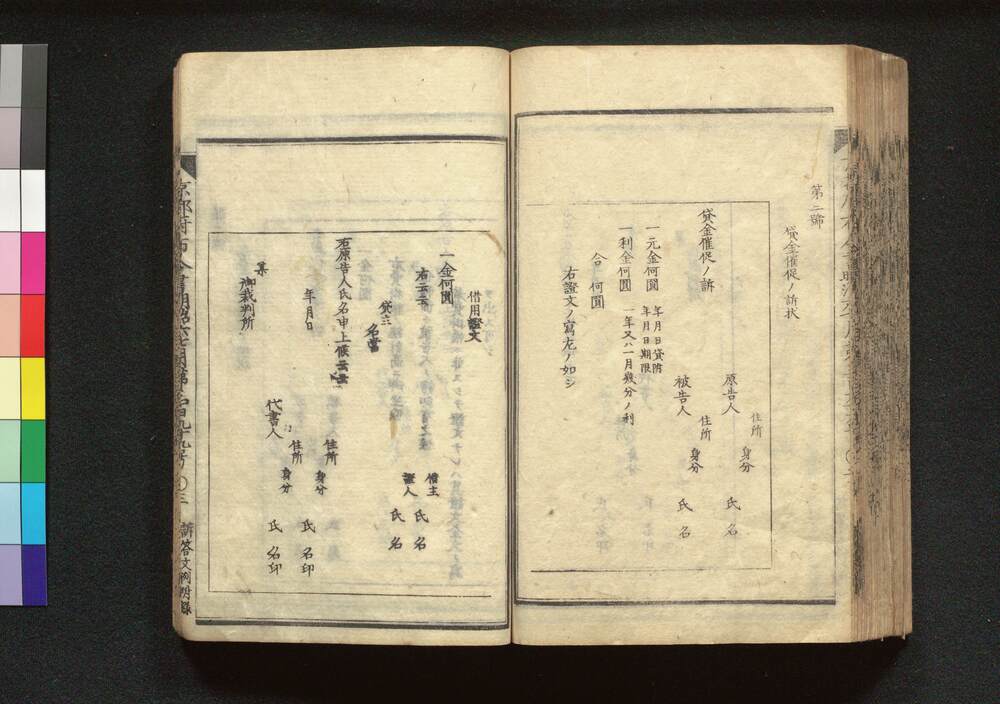 第二號
貸金催促ノ訴状
住所
身分
原告人 氏名
住所
身分
被告人 氏名
貸金催促ノ訴
一元金何圓 年月日貸附 年月日期限
一利金何圓 一年又ハ一月幾分ノ利
合何圓
右證文ノ寫左ノ如シ
借用證文
一金何圓
右云云
借主 氏名
證人 氏名
貸主
名當
右原告人氏名申上候云云
年月日
住所
身分
氏名印
住所
身分
代書人 氏名印
某
御裁判所
京都府布令書明治六七月第二百九十九号 〇三 訴答文例附録